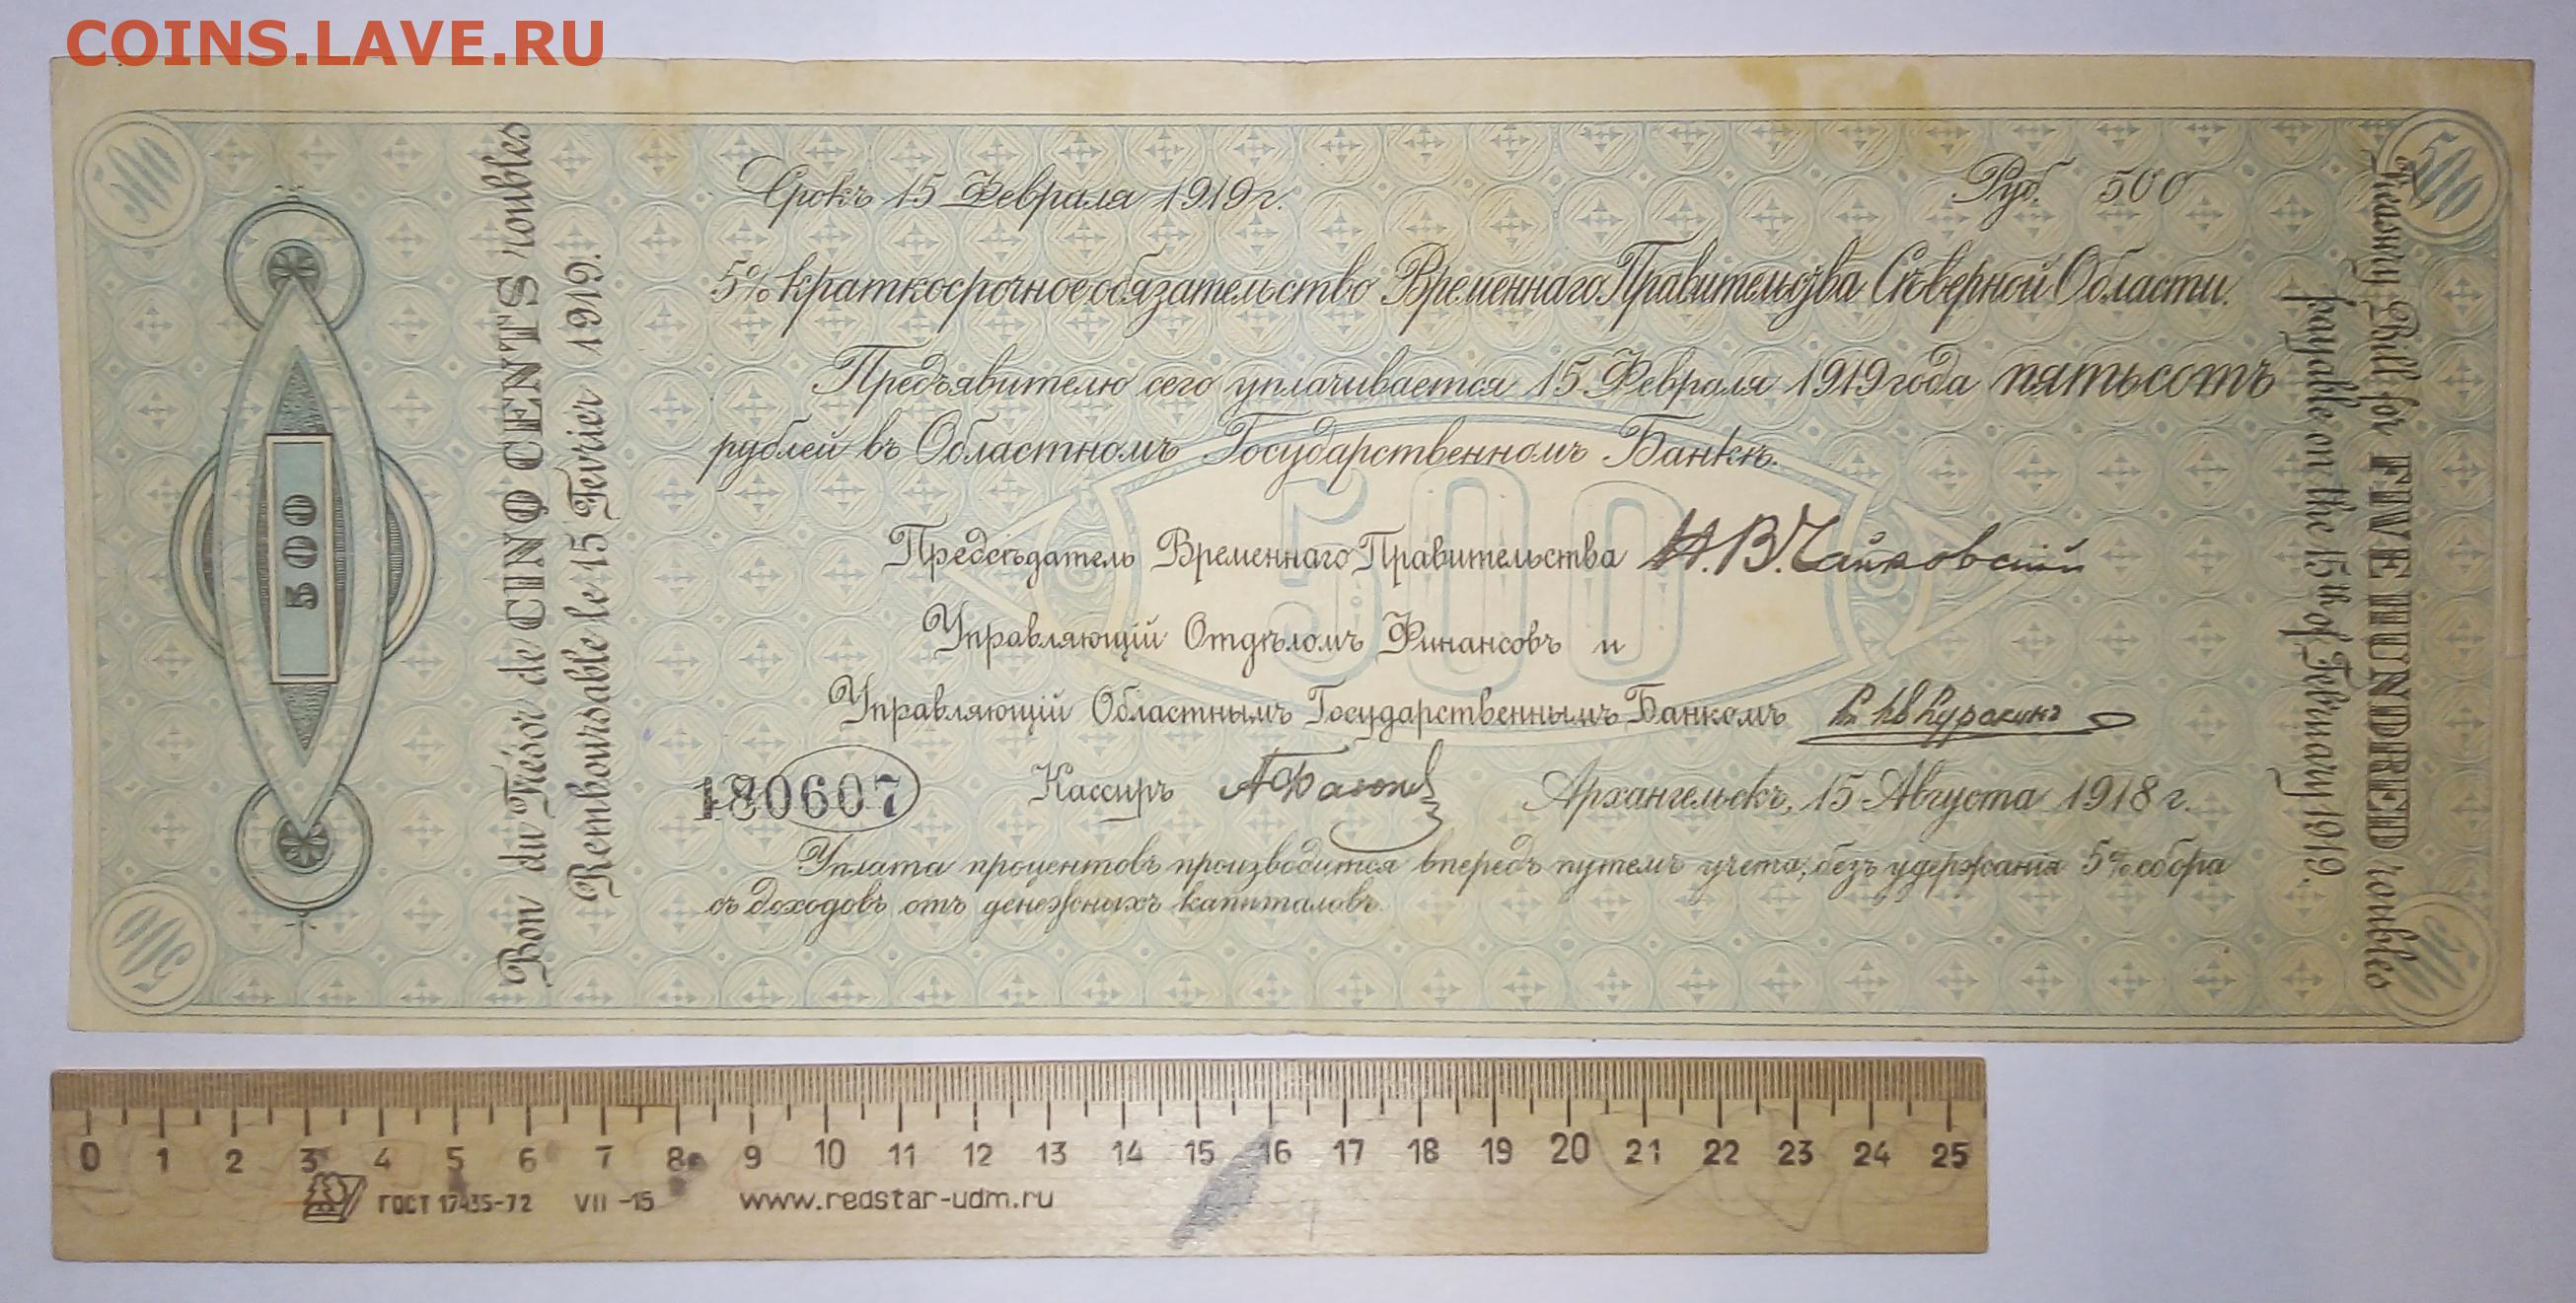 COINS.LAVE.RU
500
500
500
Bon du Trésor de CINQ CENTS roubles
Remboursable le 15 Fevrier 1919.
Срокъ 15 Февраля 1919 г.
Руб. 500
5% краткосрочное обязательство Временнаго Правительства Сѣверной Области.
Предъявителю сего уплачивается 15 Февраля 1919 года пятьсотъ
рублей въ Областномъ Государственномъ Банкѣ.
500
Предсѣдатель Временнаго Правительства Н. В. Чайковскій
Управляющій Отдѣломъ Финансовъ и
Управляющій Областнымъ Государственнымъ Банкомъ
180607
Кассиръ
Архангельскъ, 15 Августа 1918 г.
Уплата процентовъ производится впередъ путемъ учета, безъ удержанія 5% сбора
съ доходовъ отъ денежныхъ капиталовъ.
Treasury Bill for FIVE HUNDRED roubles
payable on the 15th of February 1919.
500
500
0 1 2 3 4 5 6 7 8 9 10 11 12 13 14 15 16 17 18 19 20 21 22 23 24 25
ГОСТ 17435-72 VII -15 www.redstar-udm.ru